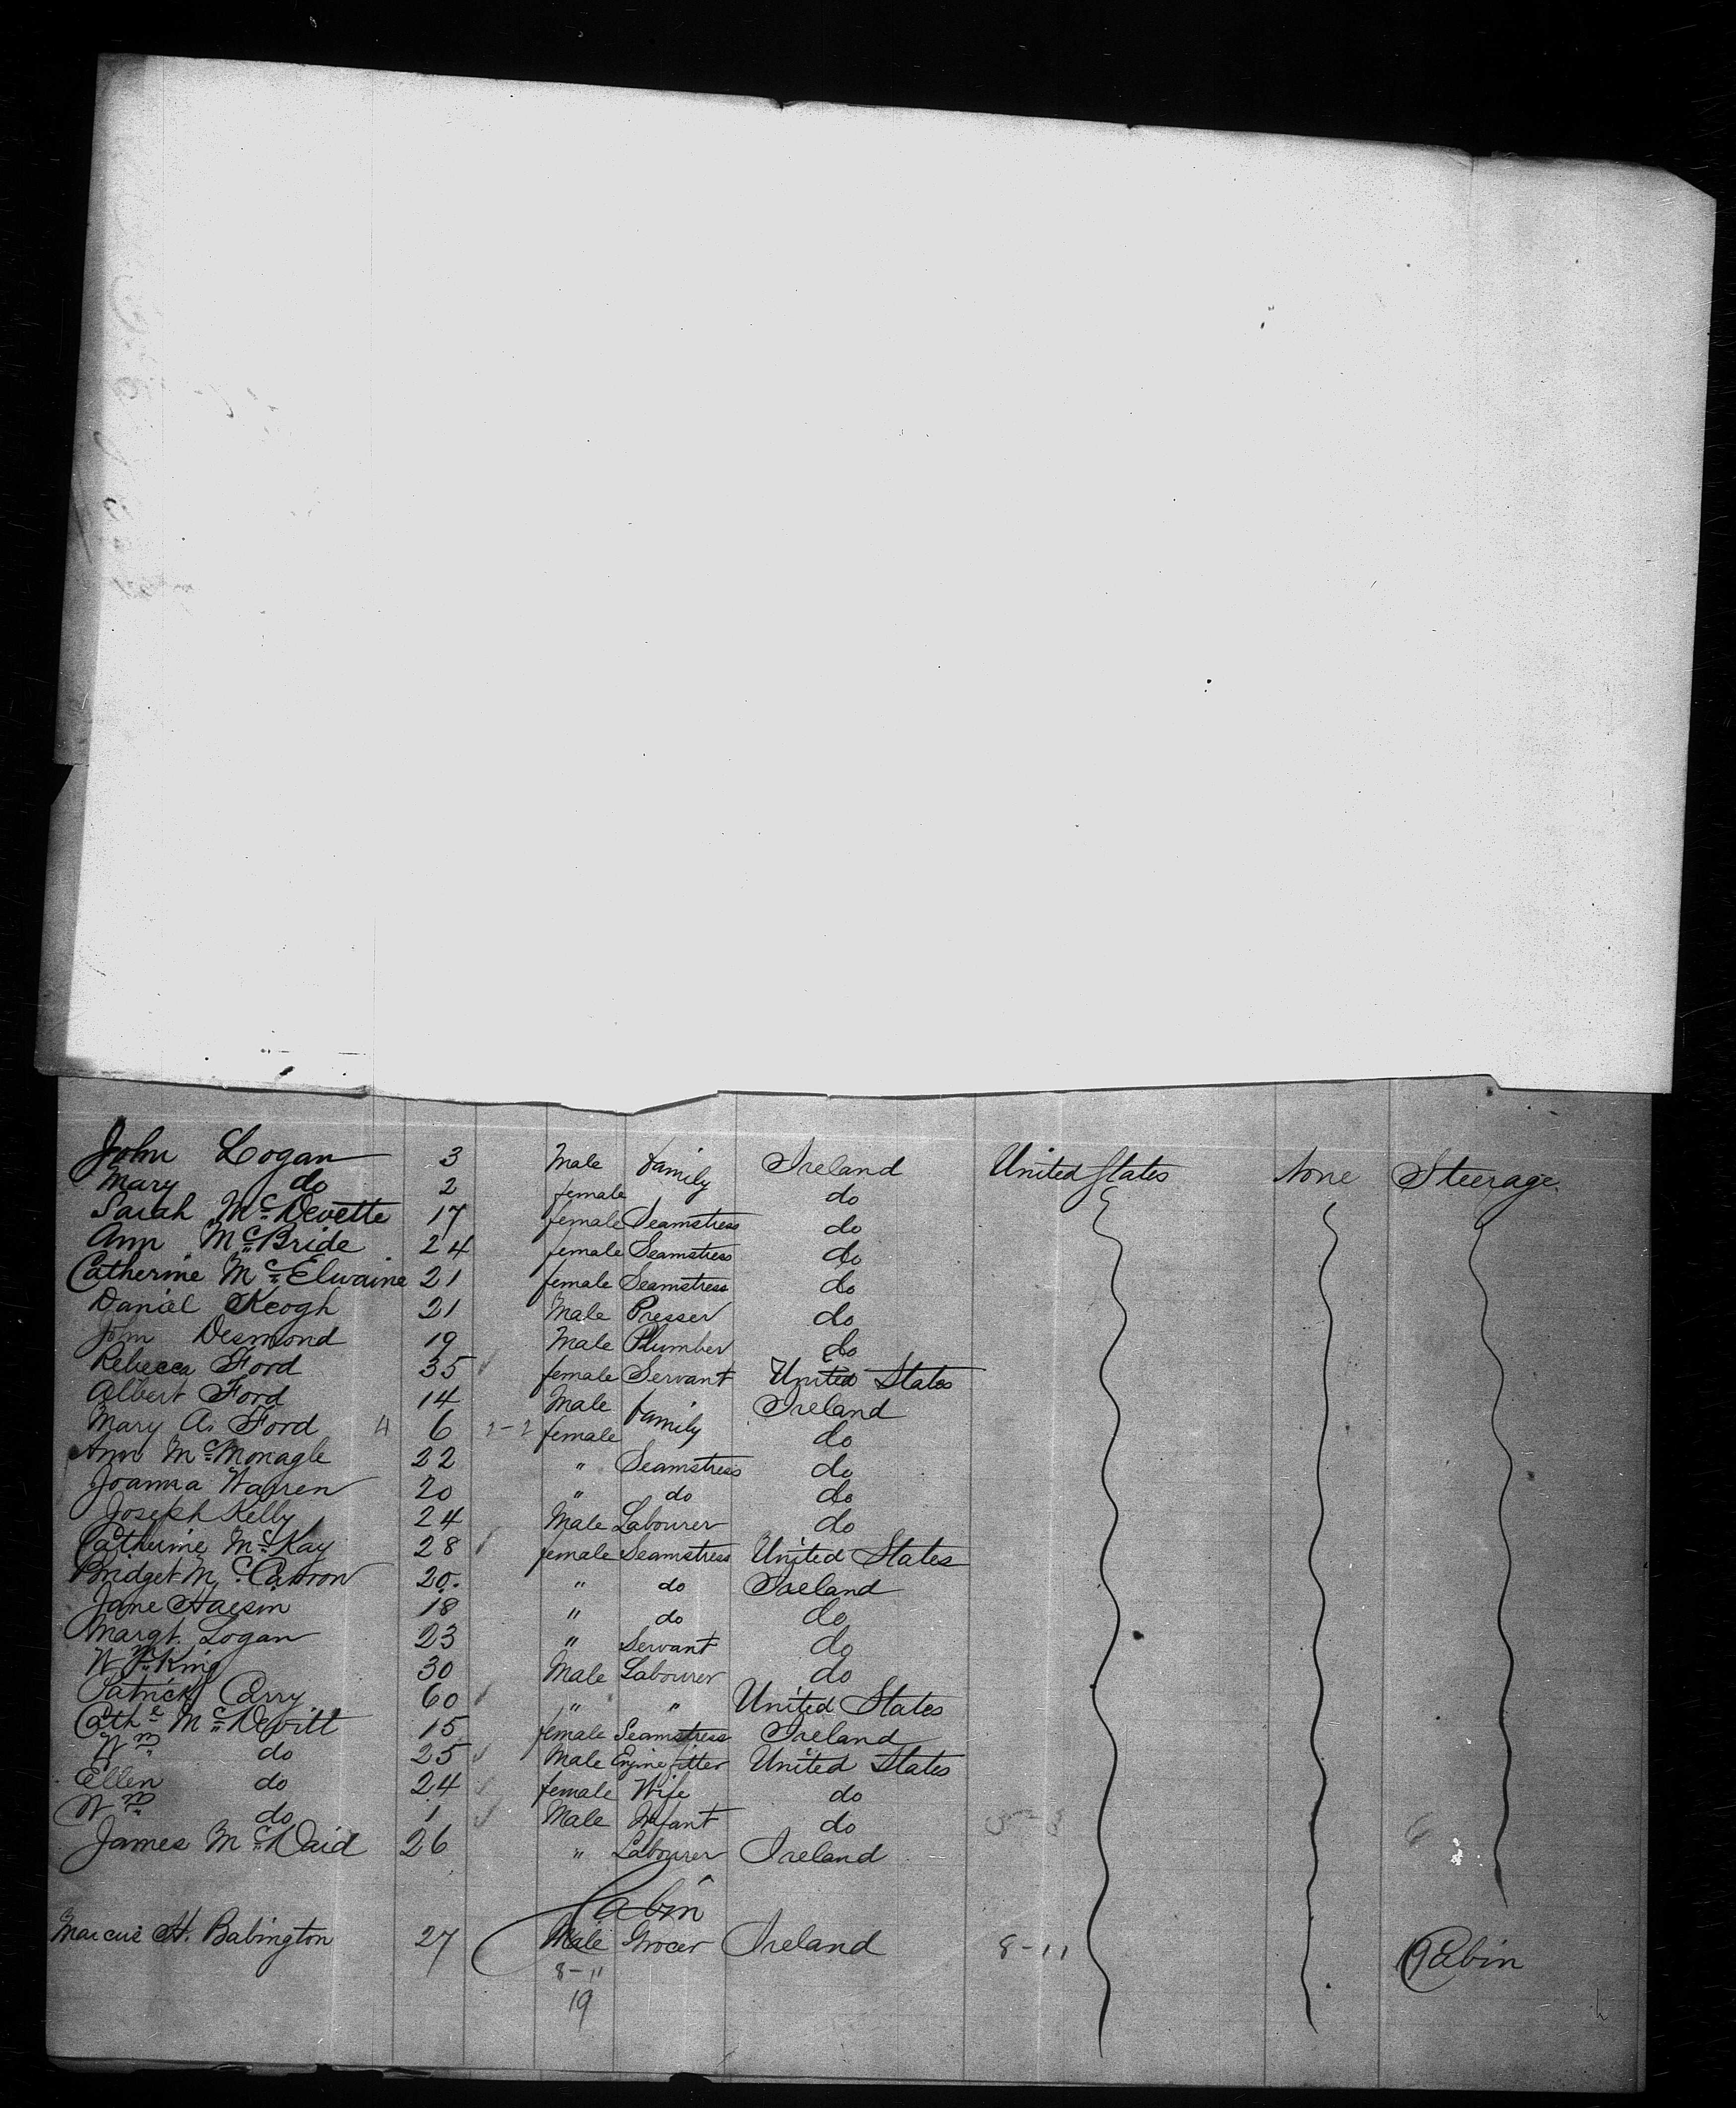 John Logan 3 Male family Ireland United States None Steerage
Mary do 2 female do
Sarah Mc Devette 17 female Seamstress do
Ann Mc Bride 24 female Seamstress do
Catherine Mc Elwaine 21 female Seamstress do
Daniel Keogh 21 Male Presser do
John Desmond 19 Male Plumber do
Rebecca Ford 35 female Servant United States
Albert Ford 14 Male family Ireland
Mary A. Ford 6 2-2 female do
Ann Mc Monagle 22 " Seamstress do
Joanna Warren 20 " do do
Joseph Kelly 24 Male Labourer do
Catherine Mc Kay 28 female Seamstress United States
Bridget Mc Carron 20 " do Ireland
Jane 18 " do do
Margt. Logan 23 " Servant do
Wm King 30 Male Labourer do
Patrick Carry 60 " " United States
Cathe Mc Devitt 15 female Seamstress Ireland
Wm do 25 Male Engine fitter United States
Ellen do 24 female Wife do
Wm do 1 Male Infant do
James Mc Daid 26 " Labourer Ireland
Cabin
Marcus H. Babington 27 Male Grocer Ireland 8-11 Cabin
8-11
19